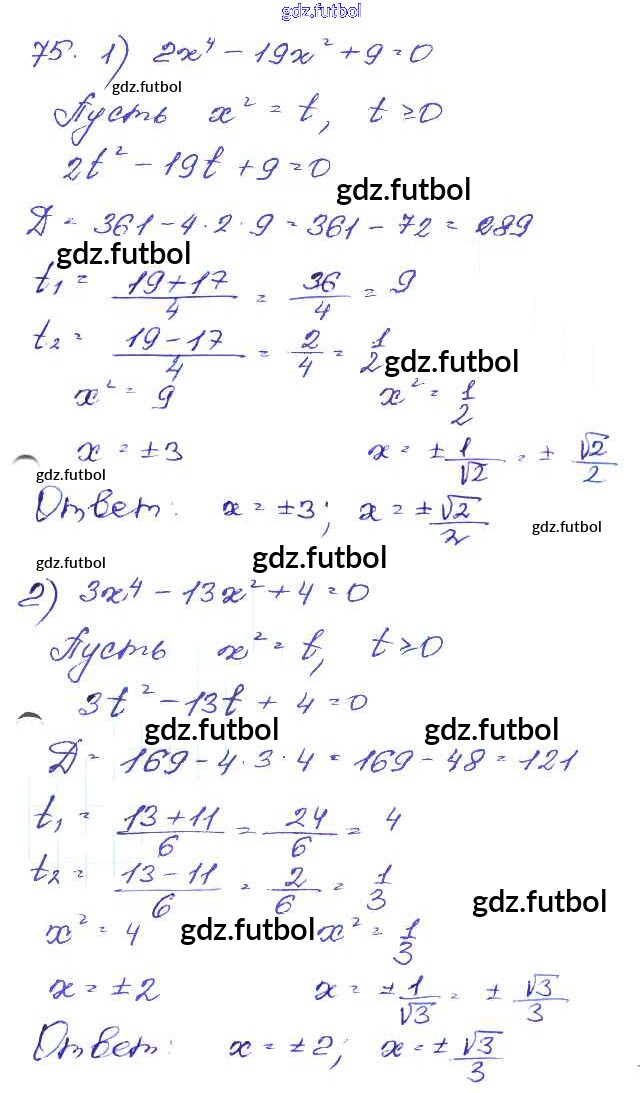 gdz.futbol
75. 1) 2x⁴ − 19x² + 9 = 0
gdz.futbol
Пусть x² = t, t ≥ 0
2t² − 19t + 9 = 0
gdz.futbol
Д = 361 − 4·2·9 = 361 − 72 = 289
gdz.futbol
t₁ = (19+17)/4 = 36/4 = 9
t₂ = (19−17)/4 = 2/4 = 1/2
gdz.futbol
x² = 9 x² = 1/2
x = ±3 x = ±1/√2 = ±√2/2
gdz.futbol
Ответ: x = ±3; x = ±√2/2
gdz.futbol
gdz.futbol
gdz.futbol
2) 3x⁴ − 13x² + 4 = 0
Пусть x² = t, t ≥ 0
3t² − 13t + 4 = 0
gdz.futbol gdz.futbol
Д = 169 − 4·3·4 = 169 − 48 = 121
t₁ = (13+11)/6 = 24/6 = 4
t₂ = (13−11)/6 = 2/6 = 1/3
gdz.futbol
x² = 4 gdz.futbol x² = 1/3
x = ±2 x = ±1/√3 = ±√3/3
Ответ: x = ±2; x = ±√3/3